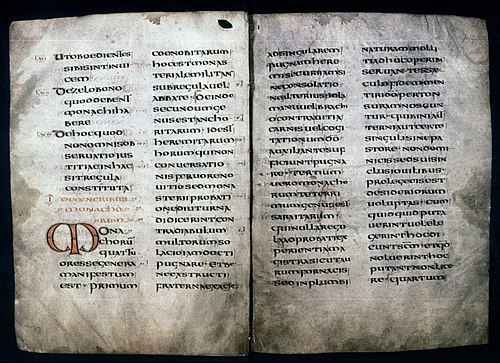 LXXI UTOBOEDIENTES
SIBISINTINUI
CEM
LXXII DEZELOBONO
QUODDEBENT
MONACHIHA
BERE
LXXIII DEHOCQUOD
NONOMNISOB
SERUATIOIUS
TITIAEINHAC
SITREGULA
CONSTITUTA
I DEGENERIBUS
MONACHO
RUM
MONA
CHORU
QUATTU
ORESSEGENERA
MANIFESTUM
EST PRIMUM
COENOBITARUM
HOCESTMONAS
TERIALEMILITAN
SUBREGULAUEL
ABBATE DEINDE
SECUNDUMGE
NUSESTANCHO
RITARUM IDEST
HEREMITARUM
HORUMQUINON
CONUERSATIO
NISFERUORENO
UITIOSEDMONA
STERIIPROBATI
ONEDIUTURNA
DIDICERINTCON
TRADIABULUM
MULTORUMSO
LACIOIAMDOCTI
PUGNARE ETBE
NEEXSTRUCTI
FRATERNAEXACIE
ADSINGULAREM
PUGNAMHERE
MISECURIIAMSI
NECONSOLATIO
NEALTERIUSSOLA
MANUUELBRACHI
OCONTRAUITIA
CARNISUELCOGI
TATIONUMDO
AUXILIANTESUF
FICIUNTPUGNA
RE TERTIUM
UEROMONACHO
RUMTETERRI
MUMGENUSEST
SARAITARUM
QUINULLAREGU
LAADPROBATIEX
PERIENTIAMA
GISTRASICUTAU
RUMFORNACIS
SEDINPLUMBI
NATURAMMOLLI
TIADHUCOPERIB
SERUANTESSAE
CULOFIDEMMEN
TIRIDEOPERTON
SURAMNOSCUN
TUR QUIBINIAUT
TERNIAUTCERTE
SINGULISINEPA
STORE NONDOMI
NICISSEDSUISIN
CLUSIOUILIBUS
PROLEGEEISEST
DESIDERIORUM
UOLUPTAS CUM
QUIDQUIDPUTA
UERINTUELELE
GERINTHOCDI
CUNTSCMETQD
NOLUERINTHOC
PUTANTNONLICE
RE QUARTUM